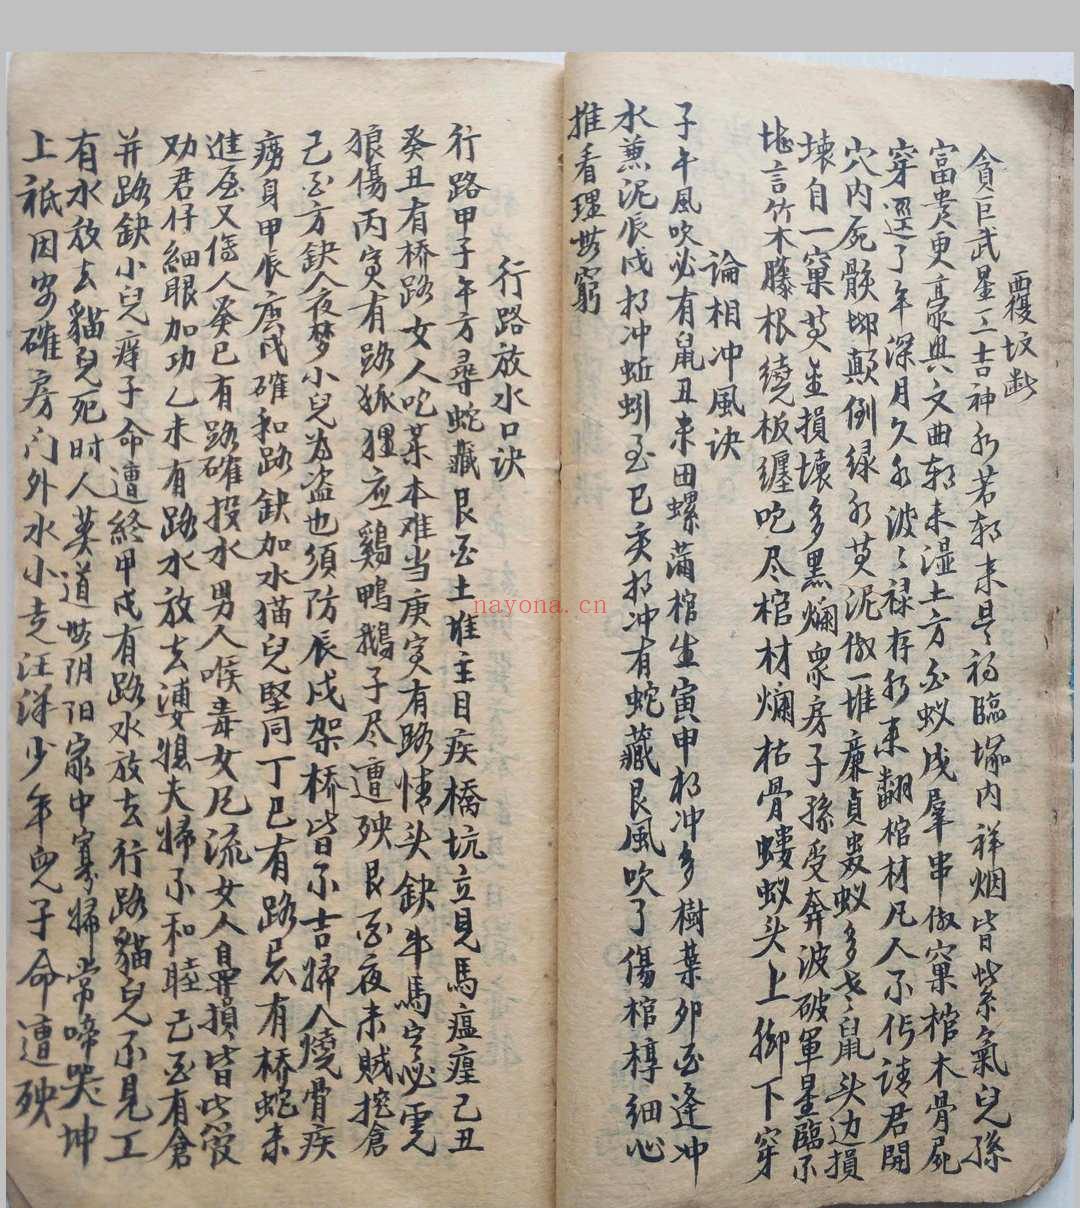 覆坟断
貪巨武星三吉神水若朝来是福臨塚内祥烟皆紫氣兒孫
富贵更豪興文曲朝来湿土方白蚁成羣串做窠棺木骨屍
穿邊了年深月久水波々禄存水来翻棺材凡人不作請君開
穴内屍骸脚顛倒绿水黄泥做一堆廉貞蟲蚁多老鼠头边損
壊自一窠黄金損壊多黒爛眾房子孫受奔波破軍星臨不
堪言竹木籐根繞板纏吃尽棺材爛枯骨螻蚁头上脚下穿
論相冲風诀
子午風吹必有鼠丑未田螺蒲棺生寅申相冲多樹葉卯酉逢冲
水兼泥辰戌相冲蚯蚓至巳亥相冲有蛇藏艮風吹了傷棺椁细心
推看理無窮
行路放水口诀
行路甲子午方尋蛇藏艮至土堆主目疾橋坑立見馬瘟瘴己丑
癸丑有桥路女人吃薬本难当庚寅有路情头缺牛馬定必虎
狼傷丙寅有路狐狸应鷄鴨鵝子尽遭殃艮酉夜来贼挖倉
己酉方缺人夜梦小兒为盗也須防辰戌架桥皆不吉婦人燒骨疾
痨身甲辰庚戌確和路缺加水猫兒堅同丁巳有路忌有桥蛇来
進屋又傷人癸巳有路確投水男人喉毒女凡流女人鼻損皆此管
劝君仔細眼加功乙未有路水放去婆媳夫婦不和睦己酉有倉
并路缺小兒痒子命遭終甲戌有路水放去行路貓兒不見工
有水放去貓兒死时人莫道無阴阳家中寡婦常啼哭坤
上祗因安確房门外水小走汪洋少年兒子命遭殃
nayona.cn